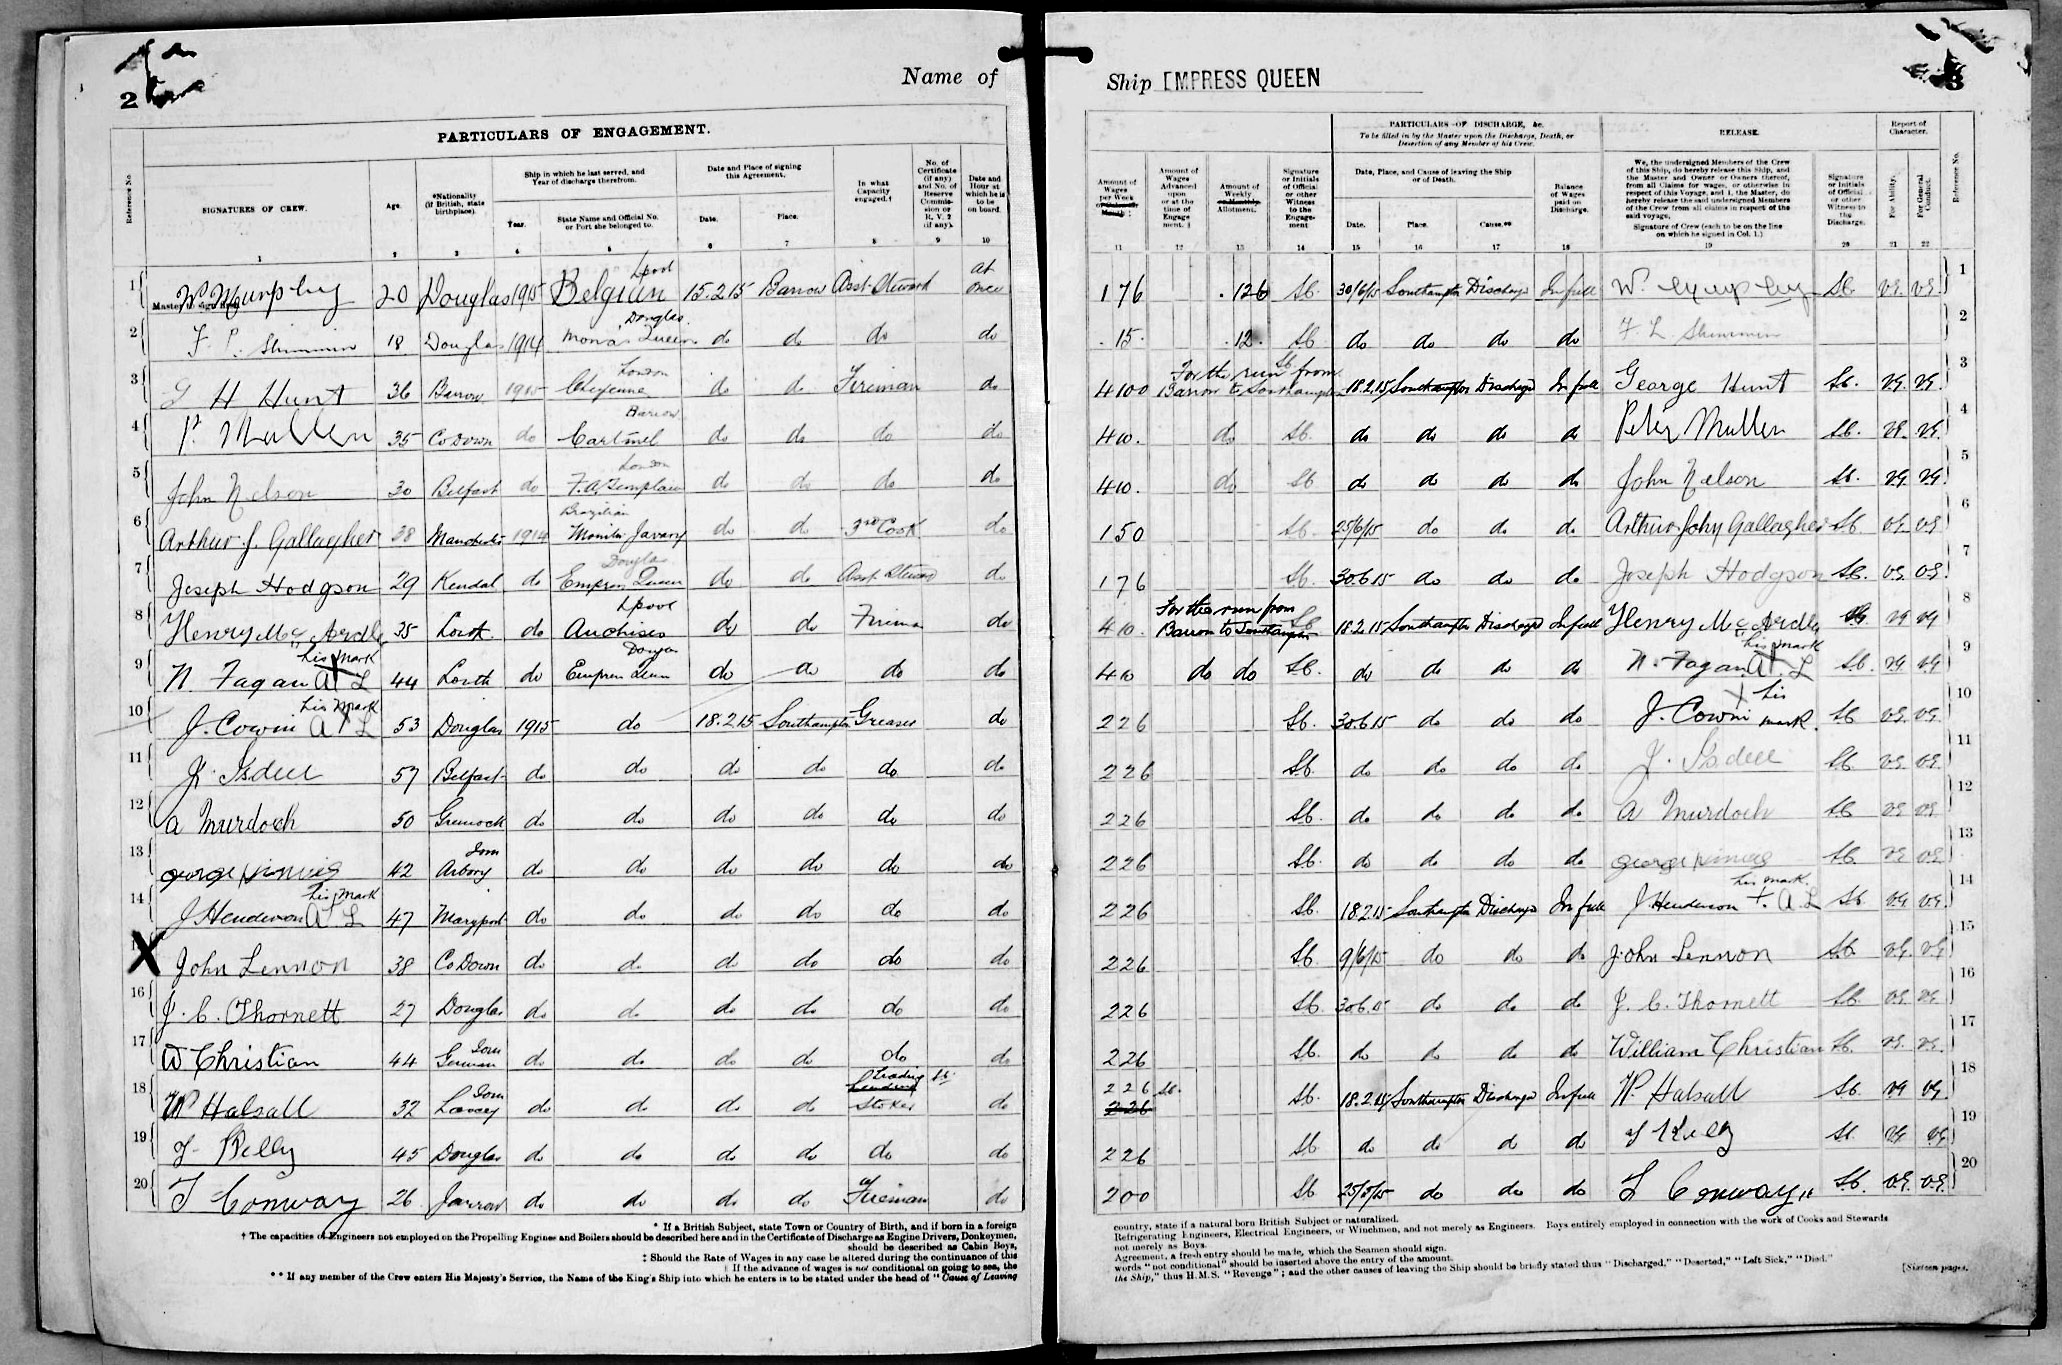 2
Name of
PARTICULARS OF ENGAGEMENT.
Reference No
SIGNATURES OF CREW.
Age.
*Nationality (if British, state birthplace).
Ship in which he last served, and Year of discharge therefrom.
Year.
State Name and Official No. or Port she belonged to.
Date and Place of signing this Agreement.
Date.
Place.
In what Capacity engaged.†
No. of Certificate (if any) and No. of Reserve Commission or R.V.2 (if any).
Date and Hour at which he is to be on board.
1 2 3 4 5 6 7 8 9 10
1 20 Douglas 1915 Belgian Lpool 15.2.15 Barrow Asst Steward at once
2 18 Douglas 1914 Mona's Queen Douglas do do do do
3 G H Hunt 36 Barrow 1915 Cheyenne London do do Fireman do
4 P. Mullen 35 Co Down do Cartmel Barrow do do do do
5 John Nelson 30 Belfast do London do do do do
6 Arthur J. Gallagher 28 Manchester 1914 Brazilian Monitor Javary do do 3rd Cook do
7 Joseph Hodgson 29 Kendal do Empress Queen Douglas do do Asst Steward do
8 Henry Mc Ardle 35 Louth do Anchises Lpool do do Fireman do
9 N. Fagan his mark X A L 44 Louth do Empress Queen Douglas do do do do
10 J. Cowin his mark X A L 53 Douglas 1915 do 18.2.15 Southampton Greaser do
11 57 Belfast do do do do do do
12 A Murdoch 50 Greenock do do do do do do
13 42 Iom Arbory do do do do do do
14 J Henderson his mark A L 47 Maryport do do do do do do
X John Lennon 38 Co Down do do do do do do
16 J. C. Thornett 27 Douglas do do do do do do
17 W Christian 44 Iom German do do do do do do
18 W Halsall 32 Iom do do do do Leading Stoker do
19 45 Douglas do do do do do do
20 T Conway 26 Jarrow do do do do Fireman do
* If a British Subject, state Town or Country of Birth, and if born in a foreign
† The capacities of Engineers not employed on the Propelling Engines and Boilers should be described here and in the Certificate of Discharge as Engine Drivers, Donkeymen,
should be described as Cabin Boys,
‡ Should the Rate of Wages in any case be altered during the continuance of this
If the advance of wages is not conditional on going to sea, the
** If any member of the Crew enters His Majesty's Service, the Name of the King's Ship into which he enters is to be stated under the head of "Cause of Leaving
Ship EMPRESS QUEEN
3
PARTICULARS OF DISCHARGE, &c.
To be filled in by the Master upon the Discharge, Death, or Desertion of any Member of his Crew.
RELEASE.
Report of Character.
Amount of Wages per Week
Amount of Wages Advanced upon or at the time of Engagement.
Amount of Weekly Allotment.
Signature or Initials of Official or other Witness to the Engagement
Date, Place, and Cause of leaving the Ship or of Death.
Date.
Place.
Cause.**
Balance of Wages paid on Discharge.
We, the undersigned Members of the Crew of this Ship, do hereby release this Ship, and the Master and Owner or Owners thereof, from all Claims for wages, or otherwise in respect of this Voyage, and I, the Master, do hereby release the said undersigned Members of the Crew from all claims in respect of the said voyage.
Signature of Crew (each to be on the line on which he signed in Col. 1.)
Signature or Initials of Official or other Witness to the Discharge.
For Ability.
For General Conduct.
Reference No.
11 12 13 14 15 16 17 18 19 20 21 22
176 126 30/6/15 Southampton Discharge In full VG. VG. 1
15. 12. do do do do 2
4100 For the run from Barrow to Southampton 18.2.15 Southampton Discharge In full George Hunt VG. VG. 3
410. do do do do do Peter Mullen VG. VG. 4
410. do do do do do John Nelson VG. VG. 5
150 25/6/15 do do do Arthur John Gallagher VG VG 6
176 30.6.15 do do do Joseph Hodgson VG. VG. 7
410. For the run from Barrow to Southampton 18.2.15 Southampton Discharge In full Henry Mc Ardle VG VG 8
410 do do do do do do N. Fagan his mark A L VG VG 9
226 30.6.15 do do do J. Cowin X his mark VG. VG. 10
226 do do do do VG. VG. 11
226 do do do do A Murdoch VG. VG. 12
226 do do do do VG VG 13
226 18.2.15 Southampton Discharge In full J Henderson his mark + A L VG VG. 14
226 9/6/15 do do do John Lennon VG. VG 15
226 30.6.15 do do do J. C. Thornett VG VG. 16
226 do do do do William Christian VG. VG. 17
226 226 18.2.15 Southampton Discharge In full W. Halsall VG VG. 18
226 do do do do VG VG 19
200 do do do Conway VG. VG. 20
country, state if a natural born British Subject or naturalized.
Refrigerating Engineers, Electrical Engineers, or Winchmen, and not merely as Engineers. Boys entirely employed in connection with the work of Cooks and Stewards
not merely as Boys.
Agreement, a fresh entry should be made, which the Seamen should sign.
words "not conditional" should be inserted above the entry of the amount.
the Ship," thus H.M.S. "Revenge"; and the other causes of leaving the Ship should be briefly stated thus "Discharged," "Deserted," "Left Sick," "Died."
[Sixteen pages.